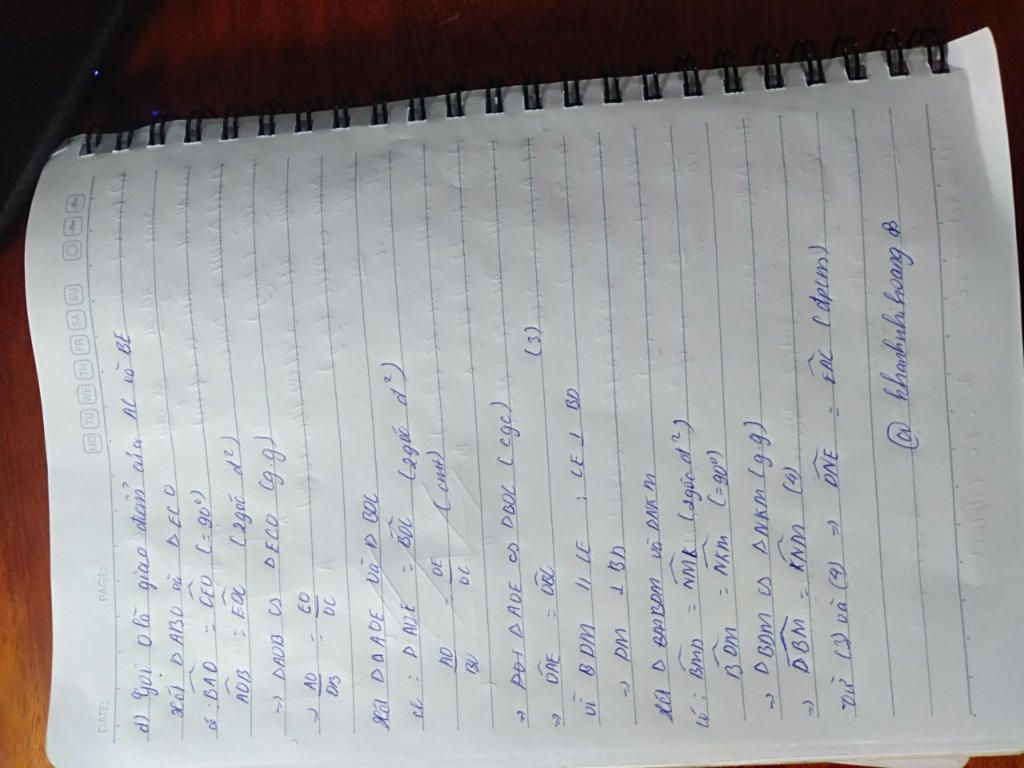 DATE: PAGE: MO TU WE TH FR SA SU
d) Gọi O là giao điểm của AC và BE
Xét Δ ABO và Δ ECO
có : BAO = CEO (= 90°)
AOB = EOC (2 góc đ²)
⇒ ΔAOB ∽ ΔECO (g.g)
⇒ AO/OB = EO/OC
Xét Δ AOE và Δ BOC
có : AOE = BOC (2 góc đ²)
AO/BO = OE/OC (cmt)
⇒ Δ AOE ∽ ΔBOC (cgc)
⇒ OAE = OBC (3)
Vì BDM // CE ; CE ⊥ BD
⇒ DM ⊥ BD
Xét Δ BDM và ΔNKM
Có : BMD = NMK (2 góc đ²)
BDM = NKM (= 90°)
⇒ ΔBDM ∽ ΔNKM (g.g)
⇒ DBM = KNM (4)
Từ (3) và (4) ⇒ DNE = EAC (đpcm)
@ khanhinhhoang